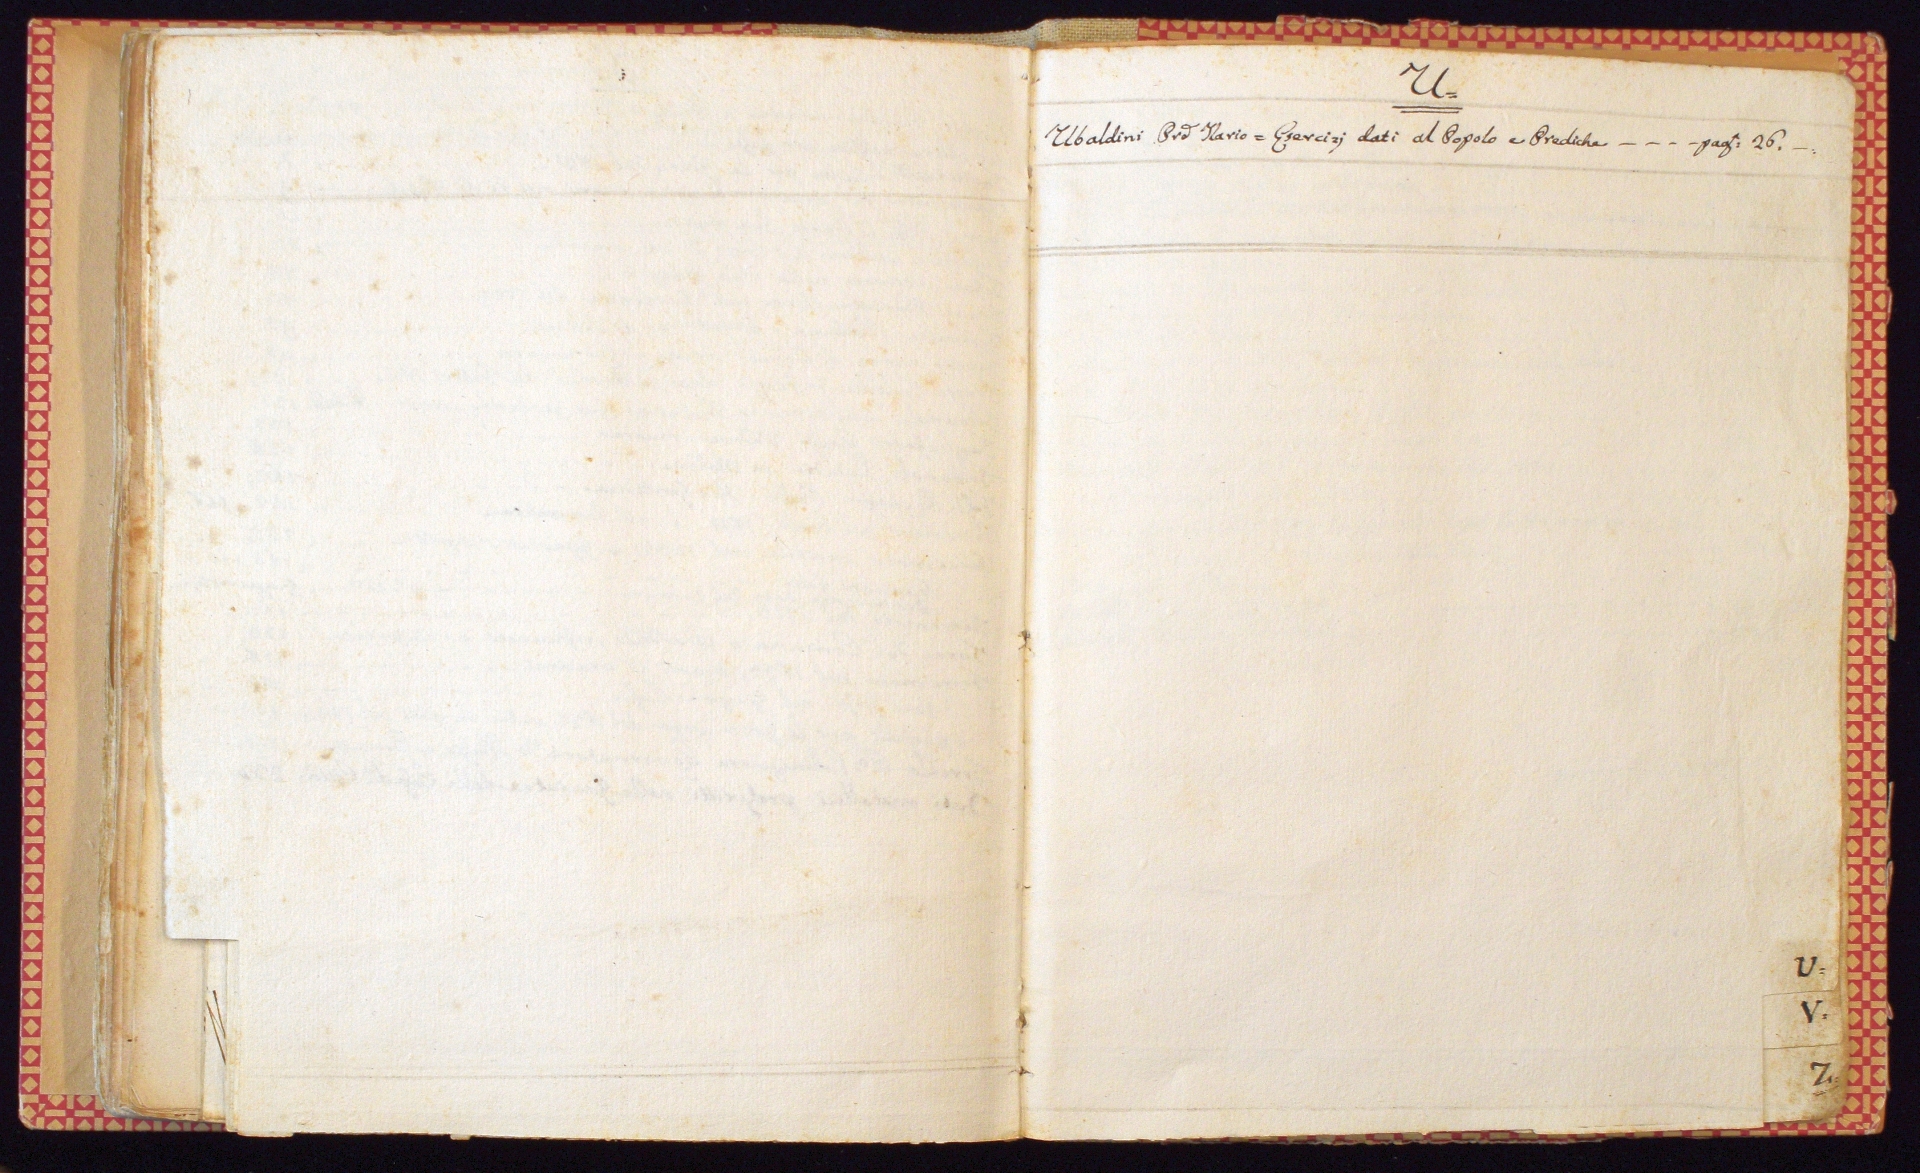 U=
Ubaldini Prd Ilario = Esercizj dati al Popolo e Prediche - - - - pag: 26. -.
U=
V=
Z=